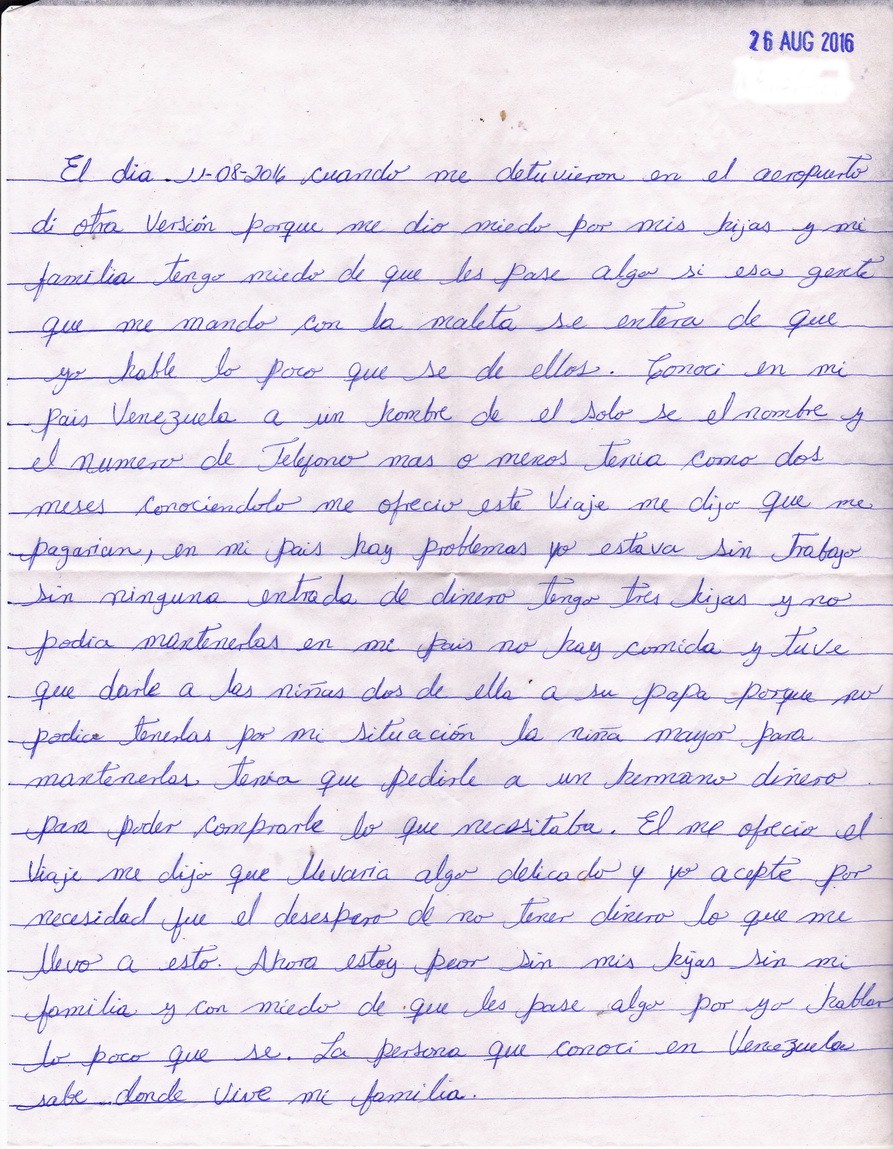 26 AUG 2016
El dia 11-08-2016 cuando me detuvieron en el aeropuerto
di otra Versión porque me dio miedo por mis hijas y mi
familia tengo miedo de que les pase algo si esa gente
que me mando con la maleta se entera de que
yo hable lo poco que se de ellos. Conoci en mi
pais Venezuela a un hombre de el solo se el nombre y
el numero de Telefono mas o menos tenia como dos
meses conociendolo me ofrecio este Viaje me dijo que me
pagarian, en mi pais hay problemas yo estava sin trabajo
sin ninguna entrada de dinero tengo tres hijas y no
podia mantenerlas en mi pais no hay comida y tuve
que darle a las niñas dos de ella a su papa porque no
podia tenerlas por mi situación la niña mayor para
mantenerlas tenia que pedirle a un hermano dinero
para poder comprarle lo que necesitaba. El me ofrecio el
Viaje me dijo que llevaria algo delicado y yo acepte por
necesidad fue el desespero de no tener dinero lo que me
llevo a esto. Ahora estoy peor sin mis hijas sin mi
familia y con miedo de que les pase algo por yo hablar
lo poco que se. La persona que conoci en Venezuela
sabe donde vive mi familia.